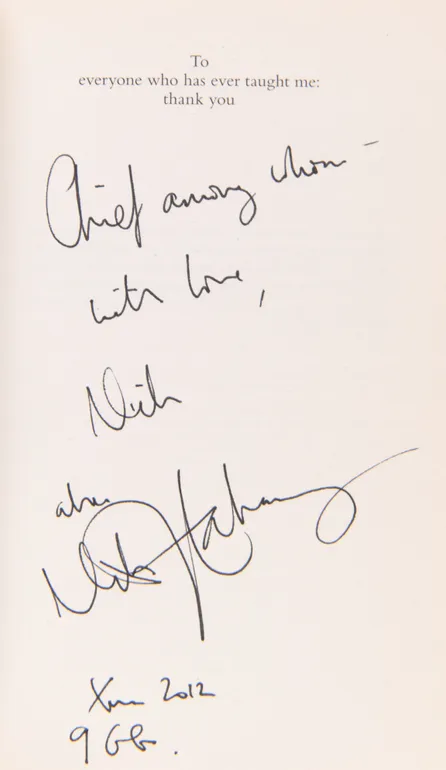 To
everyone who has ever taught me:
thank you
Chief among whom –
with love,
Nick
Xmas 2012
9 GG.